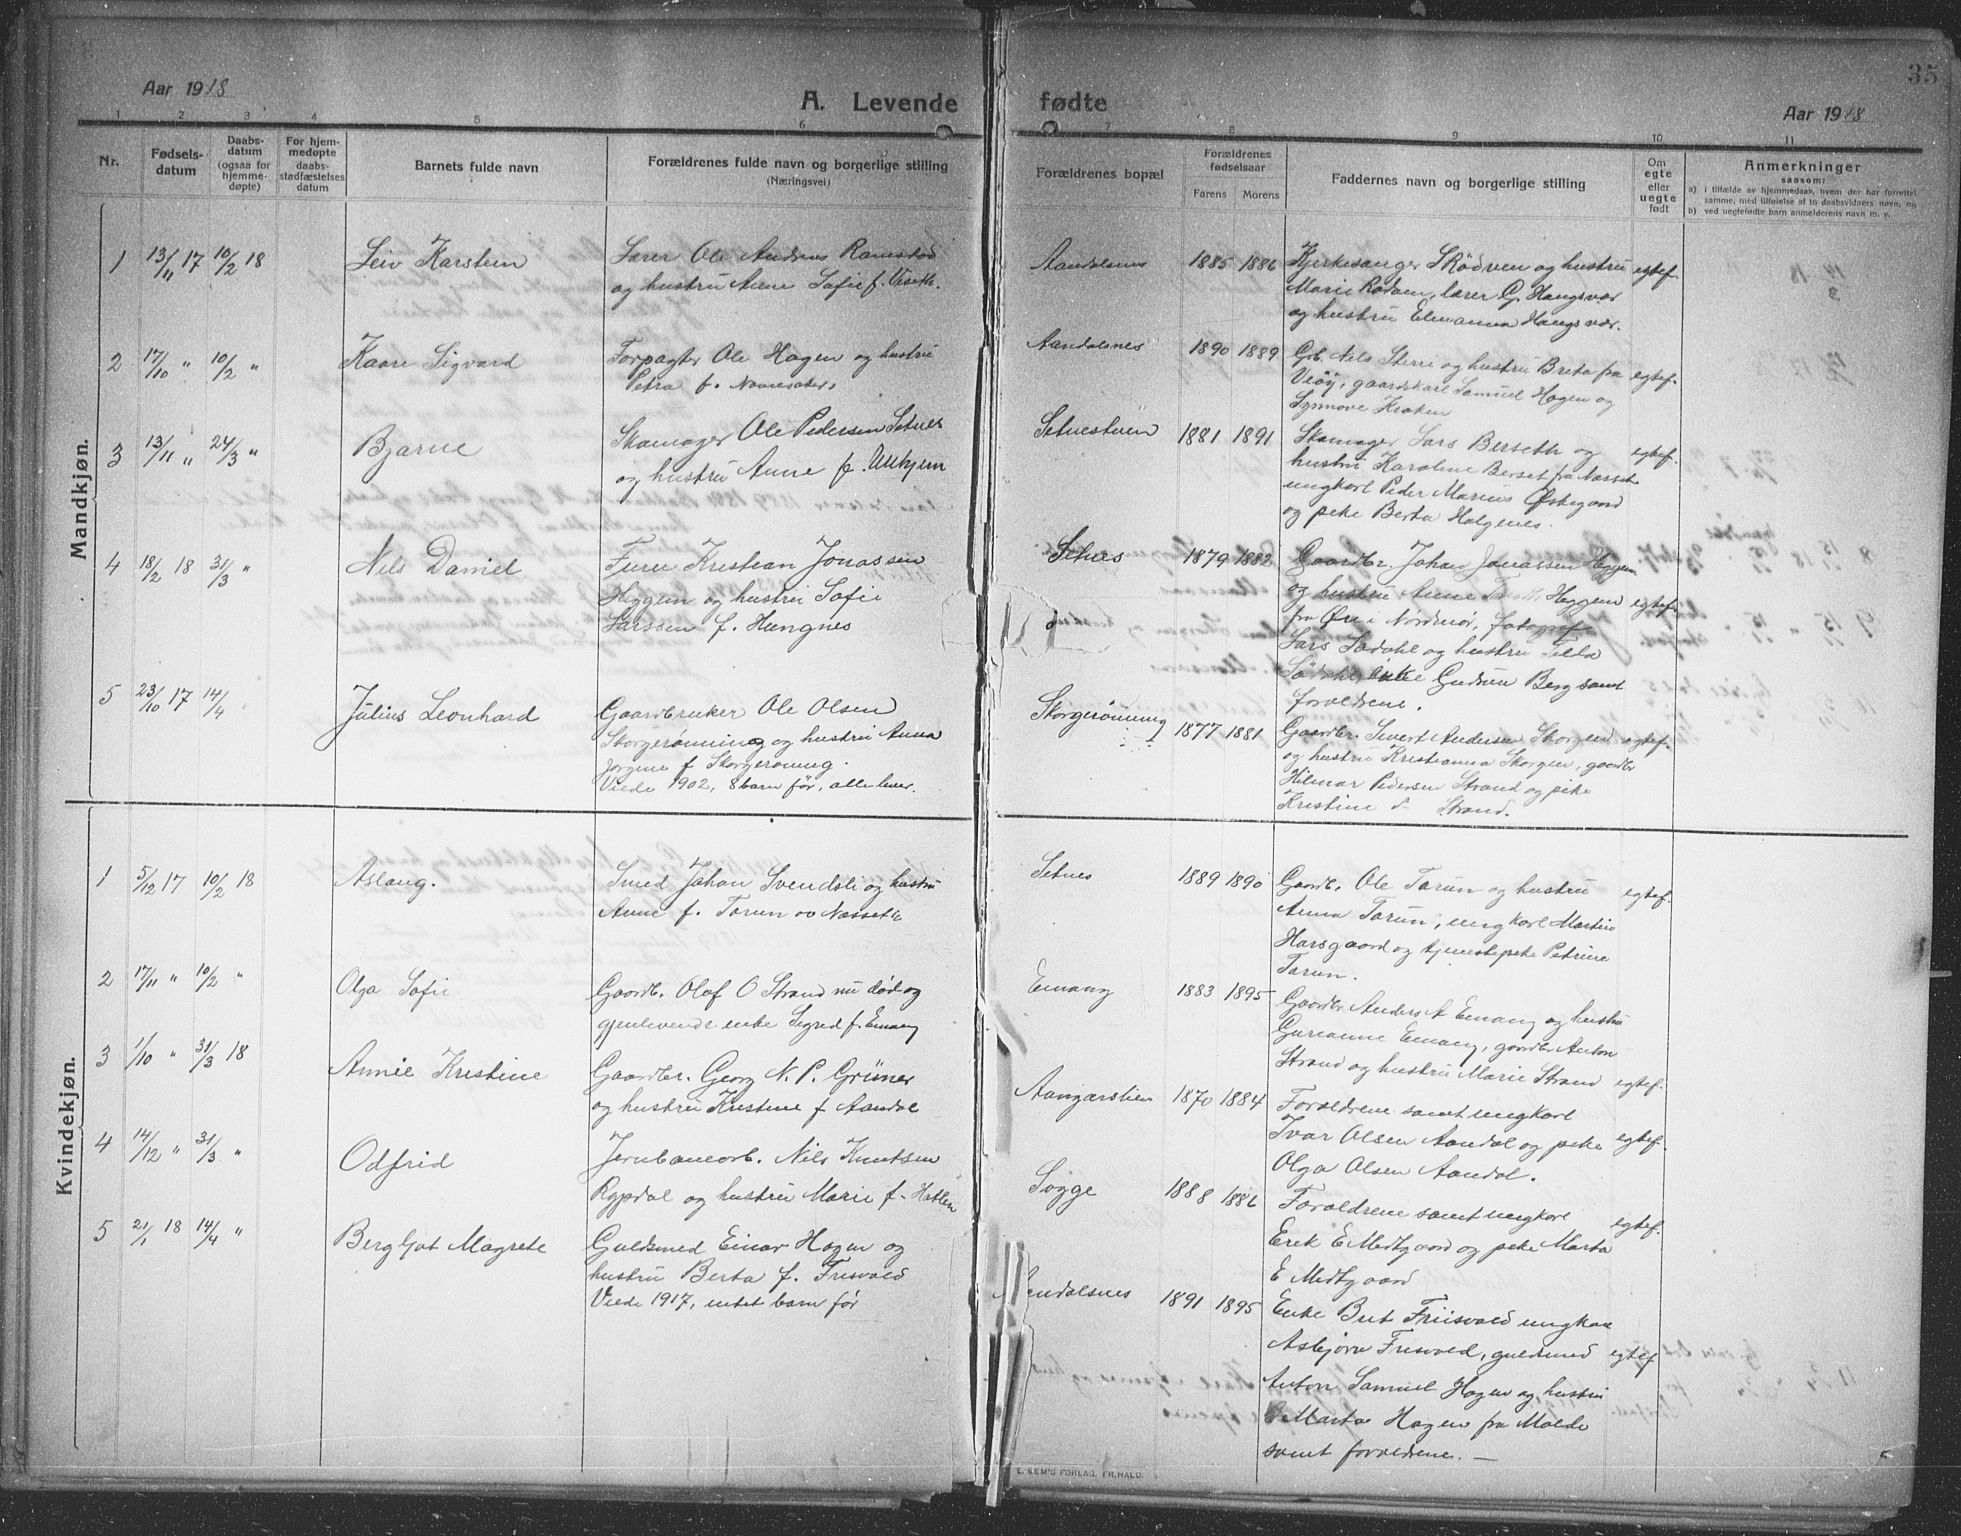 35
Aar 1918
A. Levende fødte
Aar 1918
1 2 3 4 5 6 7 8 9 10 11
Nr.
Fødsels-
datum
Daabs-
datum
(ogsaa for
hjemme-
døpte)
For hjem-
medøpte
daabs-
stadfæstelses
datum
Barnets fulde navn
Forældrenes fulde navn og borgerlige stilling
(Næringsvei)
Forældrenes bopæl
Forældrenes
fødselsaar
Farens Morens
Faddernes navn og borgerlige stilling
Om
egte
eller
uegte
født
Anmerkninger
saasom:
a) i tilfælde av hjemmedaab, hvem der har forrettet
samme, med tilføielse af to daabsvidners navn, og
b) ved uegtefødte barn anmelderens navn m. v.
Mandkjøn.
1 13/11 17 10/2 18 Leiv Karstein
Lærer Ole Andreas Ramstad
og hustru Anne Sofie f. Viseth.
Aandalsnes 1885 1886
Kjerkesanger S Rödven og hustru
Marie Rødven, lærer G. Haugsvær
og hustru Haugsvær.
egtef.
2 17/10 " 10/2 " Kaare Sigvard
Forpagter Ole Hagen og hustru
Petra f.
Aandalsnes 1890 1889
Grb. Nils Sterri og hustru Breta fra
Veöy, gaardskarl Samuel Hagen og
Synnove Kroken
egtef.
3 13/11 " 24/3 " Bjarne
Skomager Ole Pedersen Setnes
og hustru Anne f.
1881 1891
Skomager Lars Berseth og
hustru Karoline Berset fra Næsset
ungkarl Peder Marius Østegaard
og peke Berta Holgenes.
egtef.
4 18/2 18 31/3 " Nils Daniel
Kristian Jonassen
Heggem og hustru Sofie
Larssen f. Hungnes
Setnes 1879 1882
Gaardbr. Johan Jonassen Heggem
og hustru Anne Heggem
fra Øre i Nordmør, fotograf
Lars Sødahl og hustru
Gudrun Berg samt
foreldrene.
egtef.
5 23/10 17 14/4 Julius Leonhard
Gaardbruker Ole Olsen
Skorgerønning og hustru Anna
Jorgine f Skorgerønning.
Viede 1902, 8 barn før, alle lever.
Skorgerönning 1877 1881
Gaardbr. Sivert Andersen Skorgen
og hustru Kristianna Skorgen, gaardbr
Hilmar Pedersen Strand og peke
Kristine d. Strand.
egtef.
Kvindekjøn.
1 5/12 17 10/2 18 Aslaug.
Smed Johan Svendsli og hustru
Anne f. Torun av Næsseth
Setnes 1889 1890
Gaardb. Ole Torun og hustru
Anna Torun, ungkarl Martin
Horsgaard og tjenestepeke Petrine
Torun.
egtef.
2 17/11 " 10/2 " Olga Sofie
Gaardb. Olaf O Strand nu død og
gjenlevende enke Sigred f. Emang
Emang 1883 1895
Gaardbr Anders A Emang og hustru
Gurianne Emang, gaardbr Anton
Strand og hustru Marie Strand
egtef.
3 1/10 " 31/3 18 Annie Kristine
Gaardbr. Georg N. P. Grüner
og hustru Kristine f Aandal
1870 1884
Foreldrene samt ungkarl
Ivar Olsen Aandal og peke
Olga Olsen Aandal.
egtef.
4 14/12 " 31/3 " Odfrid
Jernbanearb. Nils Knutsen
Rypdal og hustru Marie f. Hatlen
Sogge 1888 1886
Foreldrene samt ungkarl
Erik E Medtgaard og peke Marta
E Medtgaard
egtef.
5 21/1 18 14/4 " Bergljot Magrete
Guldsmed Einar Hagen og
hustru Berta f. Frisvold
Viede 1917, intet barn før
Aandalsnes 1891 1895
Enke Brit Friisvold ungkar
Asbjørn Frisvold, guldsmed
Anton Samuel Hagen og hustru
Marta Hagen fra Molde
samt foreldrene. —
egtef
E. SEM'S FORLAG, FR.HALD.